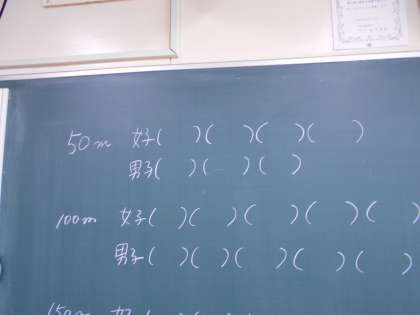 50m 女子(　)(　)(　)(　)
男子(　)(　)(　)
100m 女子(　)(　)(　)(　)(　)
男子(　)(　)(　)(　)(　)
150m 女子(